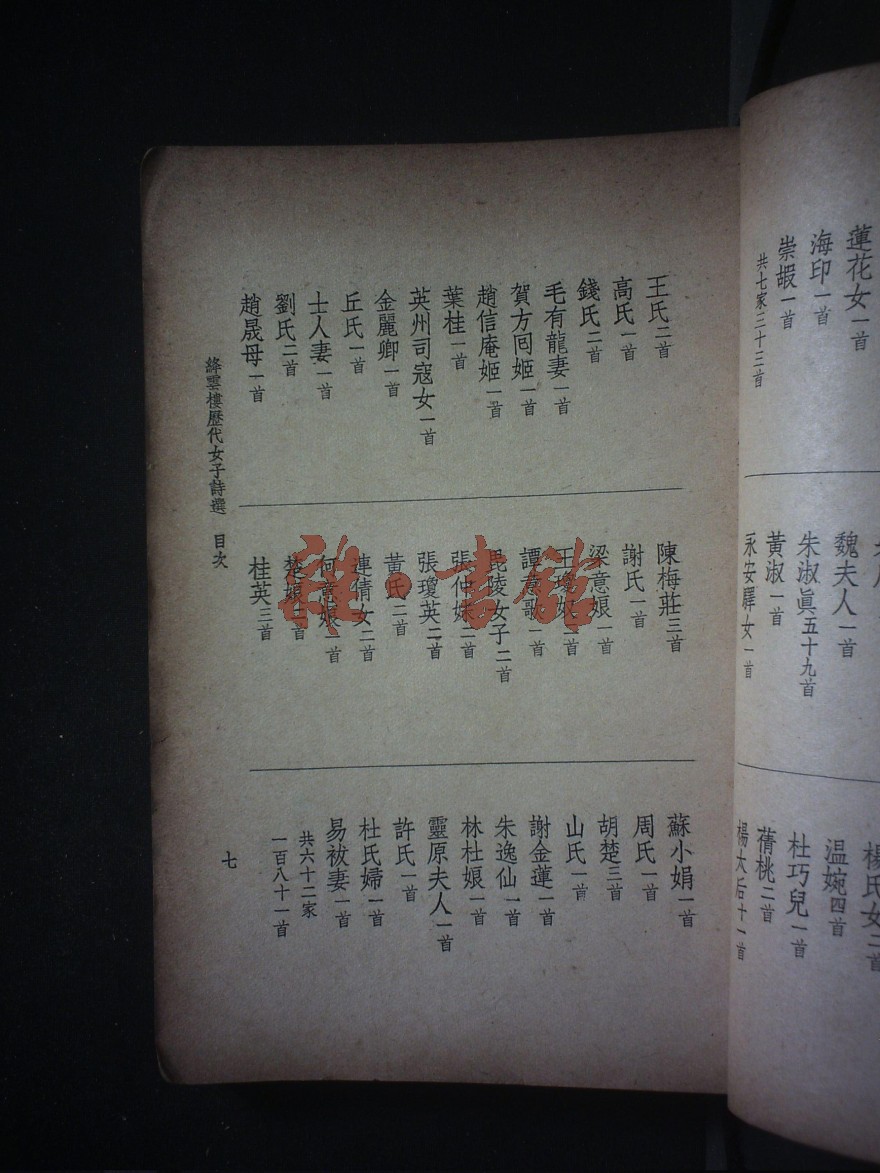 蓮花女一首
海印一首
崇嘏一首
共七家三十三首
魏夫人一首
朱淑眞五十九首
黃淑一首
永安驛女一首
楊氏女二首
温婉四首
杜巧兒一首
蒨桃二首
楊太后十一首
王氏二首
高氏一首
錢氏二首
毛有龍妻一首
賀方回姬一首
趙信庵姬一首
葉桂一首
英州司寇女一首
金麗卿一首
丘氏一首
士人妻一首
劉氏二首
趙晟母一首
陳梅莊三首
謝氏一首
梁意娘一首
王瓊奴二首
譚意歌一首
毘陵女子二首
張仲妹二首
張瓊英二首
黃氏二首
連倩女二首
何意娘一首
楚娘二首
桂英三首
蘇小娟一首
周氏一首
胡楚三首
山氏一首
謝金蓮一首
朱逸仙一首
林杜娘一首
靈原夫人一首
許氏一首
杜氏婦一首
易祓妻一首
共六十二家
一百八十一首
絳雲樓歷代女子詩選 目次
七
雜·書館